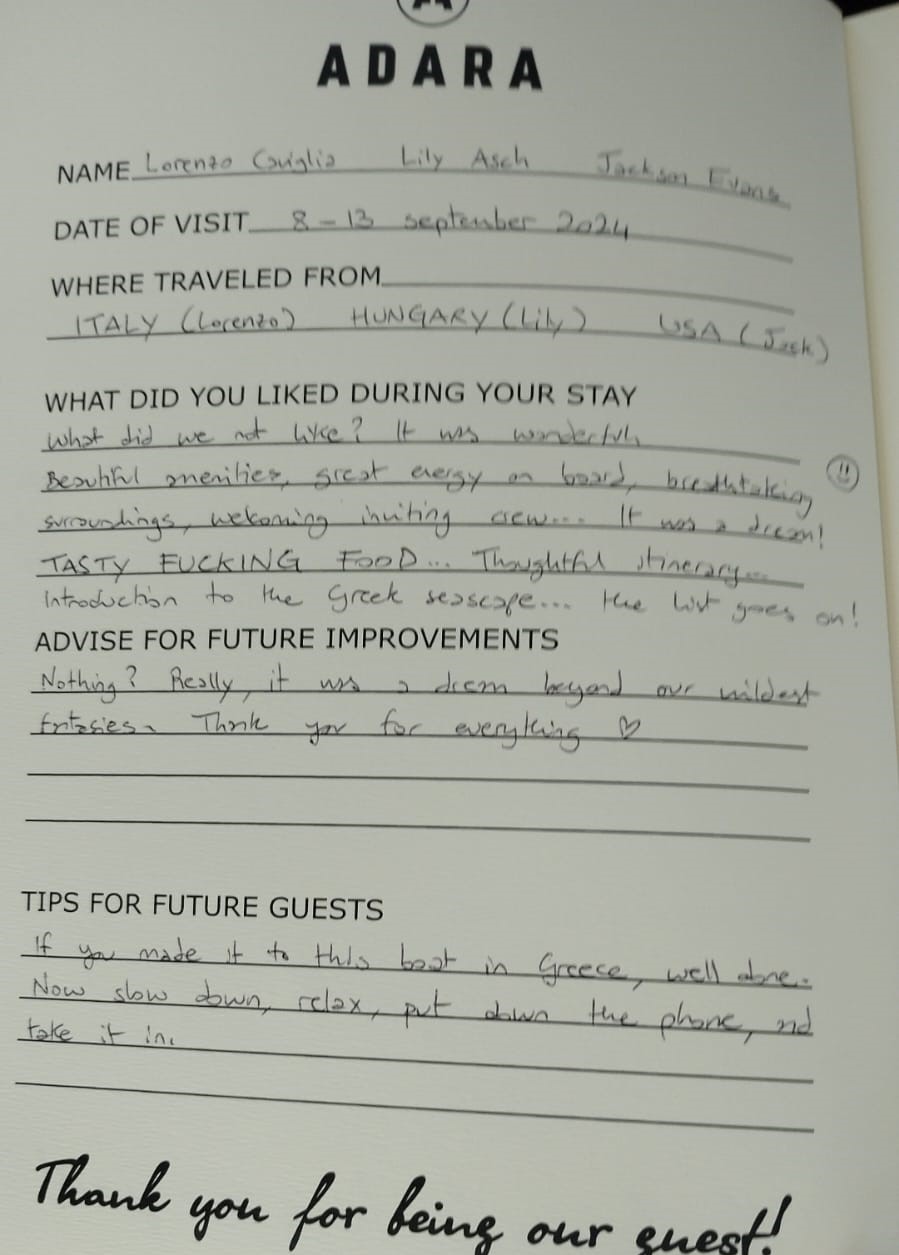 ADARA
NAME Lorenzo Caviglia Lily Asch Jackson Evans
DATE OF VISIT 8-13 september 2024
WHERE TRAVELED FROM
ITALY (Lorenzo) HUNGARY (Lily) USA (Jack)
WHAT DID YOU LIKED DURING YOUR STAY
What did we not like? It was wonderful,
Beautiful amenities, great energy on board, breathtaking !!
surroundings, welcoming inviting crew... It was a dream!
TASTY FUCKING FOOD... Thoughtful itinerary...
Introduction to the Greek seascape... the list goes on!
ADVISE FOR FUTURE IMPROVEMENTS
Nothing? Really, it was a dream beyond our wildest
fntasies. Thank you for everything ♡
TIPS FOR FUTURE GUESTS
If you made it to this boat in Greece, well done.
Now slow down, relax, put down the phone, nd
take it in.
Thank you for being our guest!